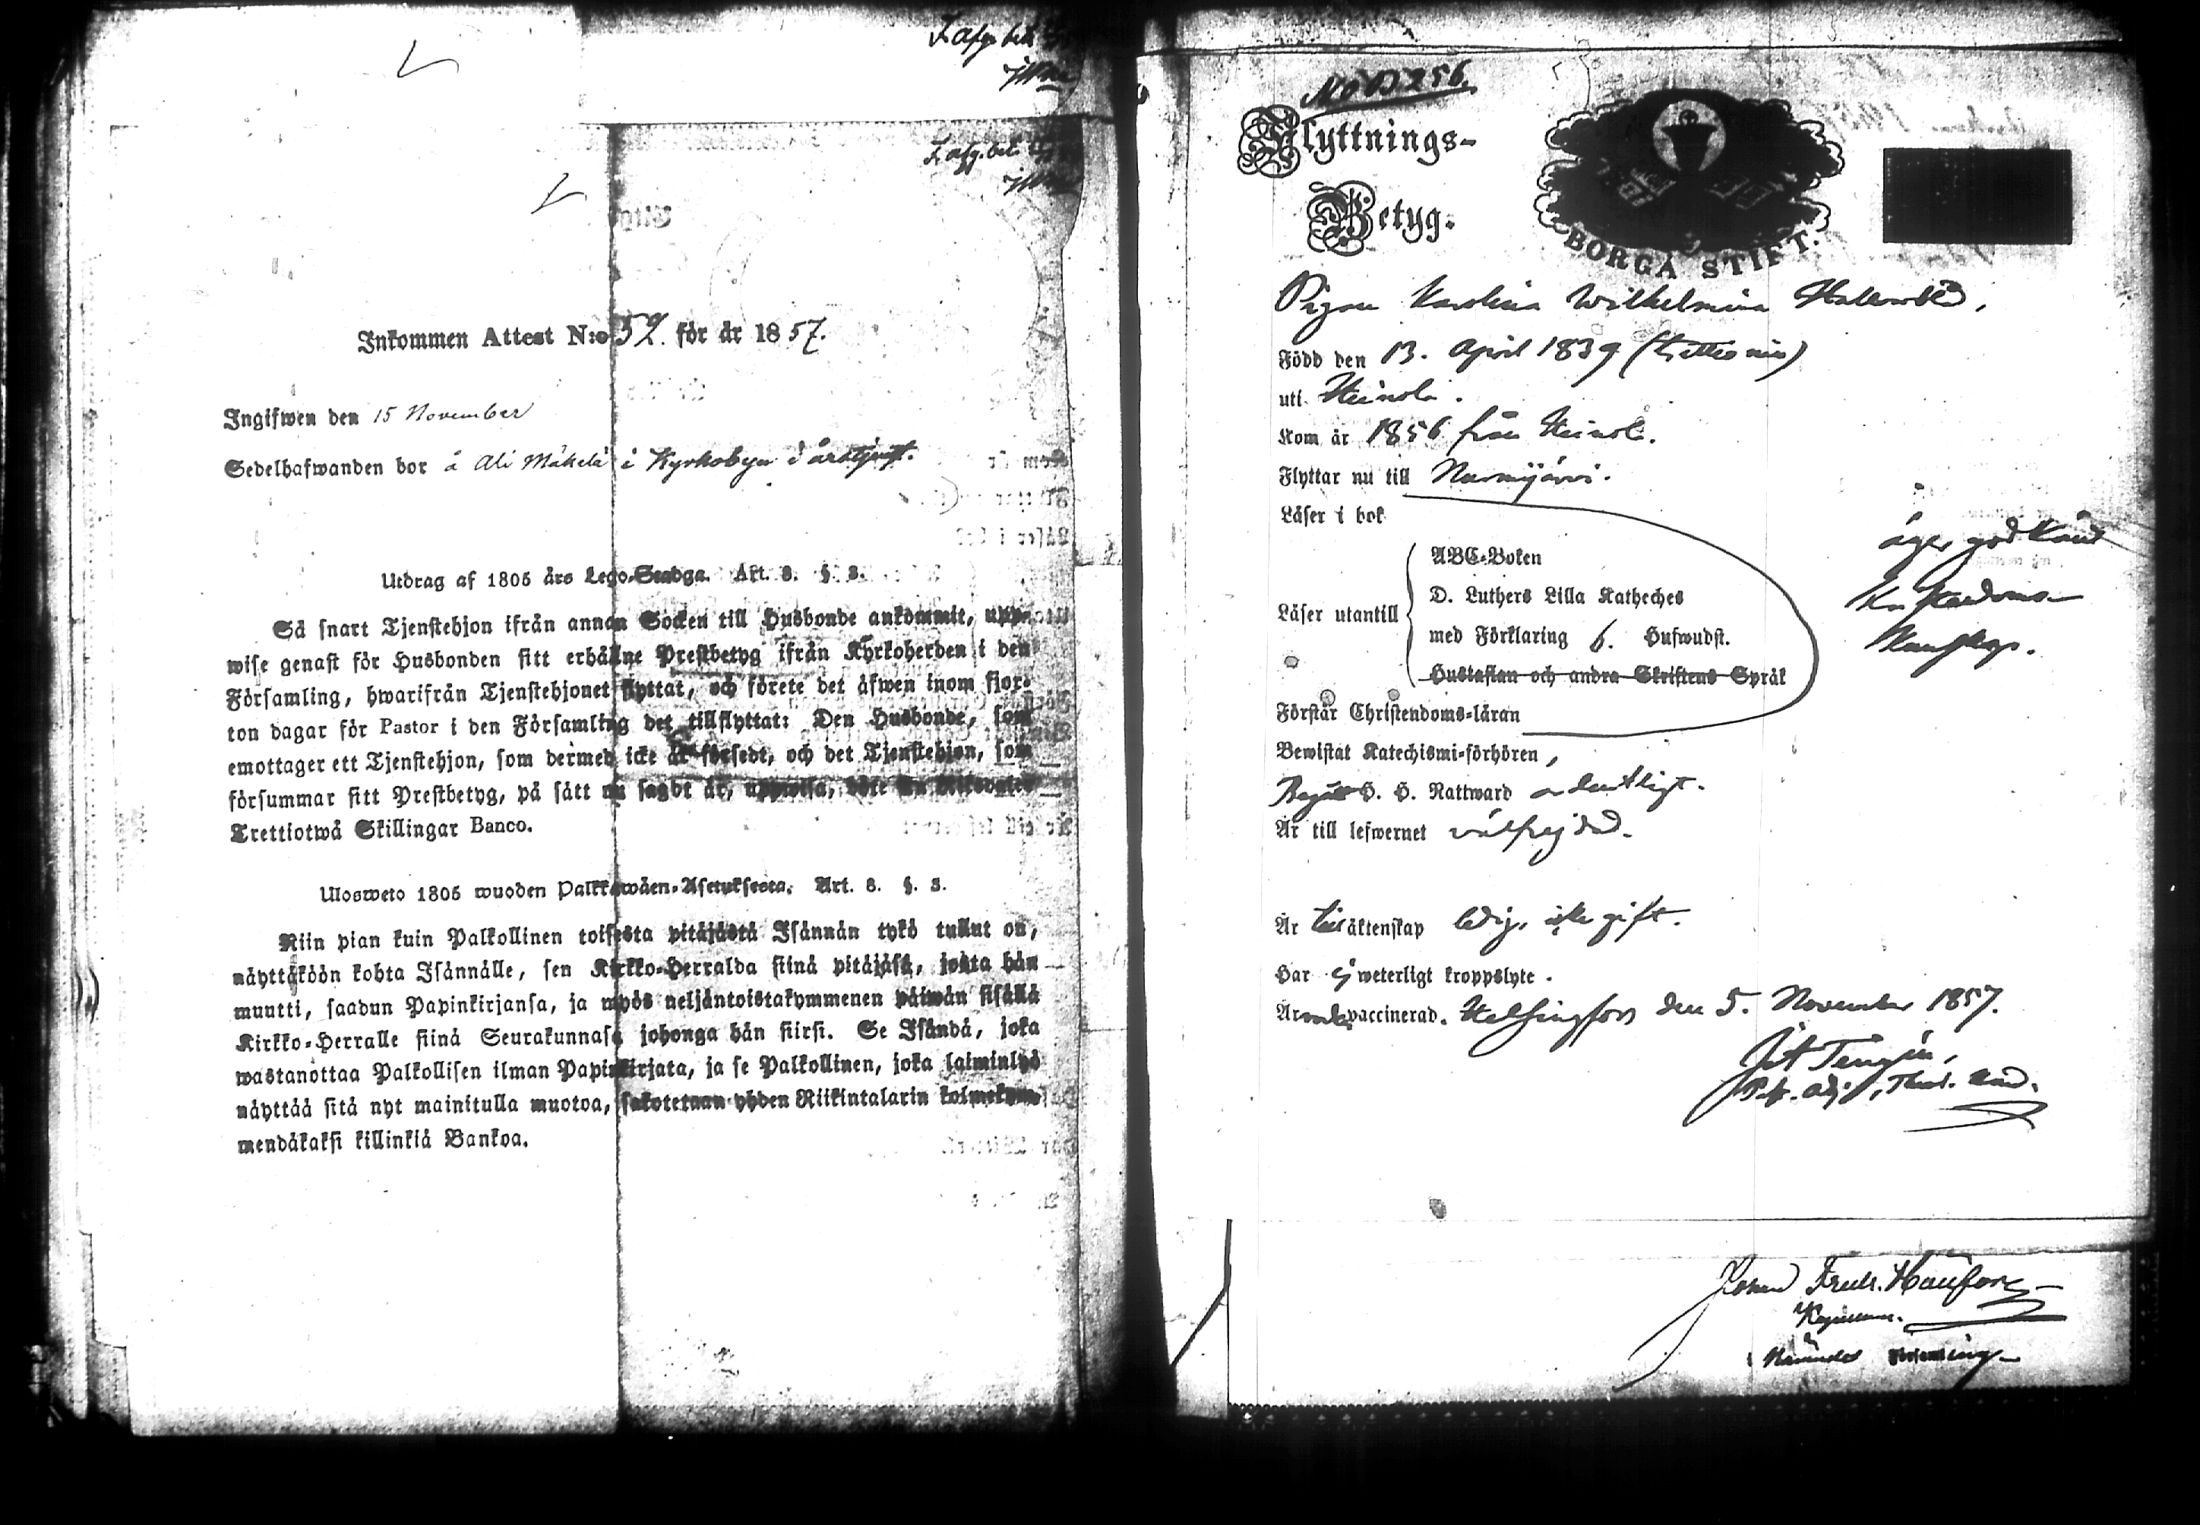 I afg. bet.
I afg. bet.
Inkommen Attest N:o 52. för år 1857.
Ingifwen den 15 November
Sedelhafwanden bor å Ali Mäkelä i Kyrkobyn i årstjenst.
Utdrag af 1805 års Lego-Stadga. Art. 8. §. 3.
Så snart Tjenstehjon ifrån annan Socken till Husbonde ankommit, upp-
wise genast för Husbonden sitt erhållne Prestbetyg ifrån Kyrkoherden i den
Församling, hwarifrån Tjenstehjonet flyttat, och förete det äfwen inom fjor-
ton dagar för Pastor i den Församling det tillflyttat: Den Husbonde, som
emottager ett Tjenstehjon, som dermed icke är försedt, och det Tjenstehjon, som
försummar sitt Prestbetyg, på sätt nu sagdt är, uppwisa, böte En Riksdaler
Trettiotwå Skillingar Banco.
Ulosweto 1805 wuoden Palkkawäen-Asetuksesta. Art. 8. §. 3.
Niin pian kuin Palkollinen toisesta pitäjästä Isännän tykö tullut on,
näyttäköön kohta Isännälle, sen Kirkko-Herralda siinä pitäjäsä, josta hän
muutti, saadun Papinkirjansa, ja myös neljäntoistakymmenen päiwän sisällä
Kirkko-Herralle siinä Seurakunnasa johonga hän siirsi. Se Isändä, joka
wastanottaa Palkollisen ilman Papinkirjata, ja se Palkollinen, joka laiminlyö
näyttää sitä nyt mainitulla muotoa, sakotetaan yhden Riikintalarin kolmekym-
mendäkaksi killinkiä Bankoa.
No 256.
Flyttnings-
Betyg.
BORGÅ STIFT.
Pigan Karolina Wilhelmina
Född den 13. April 1839 (trettio nio)
uti Heinola.
Kom år 1856 från Heinola.
Flyttar nu till Nurmijärvi.
Läser i bok
ABC-Boken
D. Luthers Lilla Katheches
Läser utantill
med Förklaring 6. Hufwudst.
Hustaflan och andra Skriftens Språk
äger godkänd
Kristendoms-
kunskap.
Förstår Christendoms-läran
Bewistat Katechismi-förhören,
Begått H. H. Nattward ordentligt.
Är till lefwernet välfrejdad.
Är till äktenskap ledig, icke gift.
Har ej weterligt kroppslyte.
Är vaccinerad. Helsingfors den 5. November 1857.
Johan Fredr.
Församling